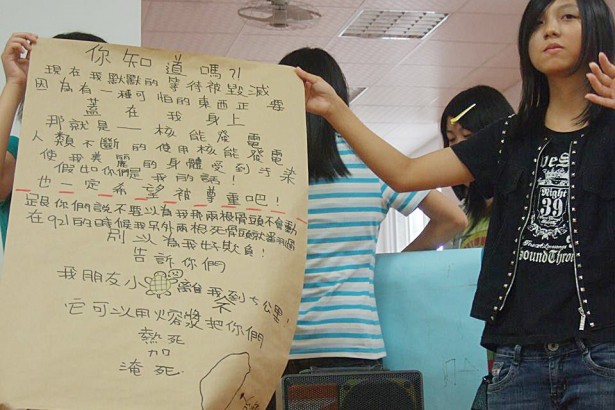 你知道嗎?!
現在我默默的等待被毀滅
因為有一種可怕的東西正要
蓋在我身上
那就是——核能發電
人類不斷的使用核能發電
使我美麗的身體受到汙染
假如你們是我的話!
也一定希望被尊重吧!
是跟你們說不要以為我那兩根骨頭不會動
在921的時候我另外兩根死骨頭
別以為我好欺負!
告訴你們
我朋友小 離我不到七公里!
它可以用熔漿把你們
熱死
加
淹死.
Night
39